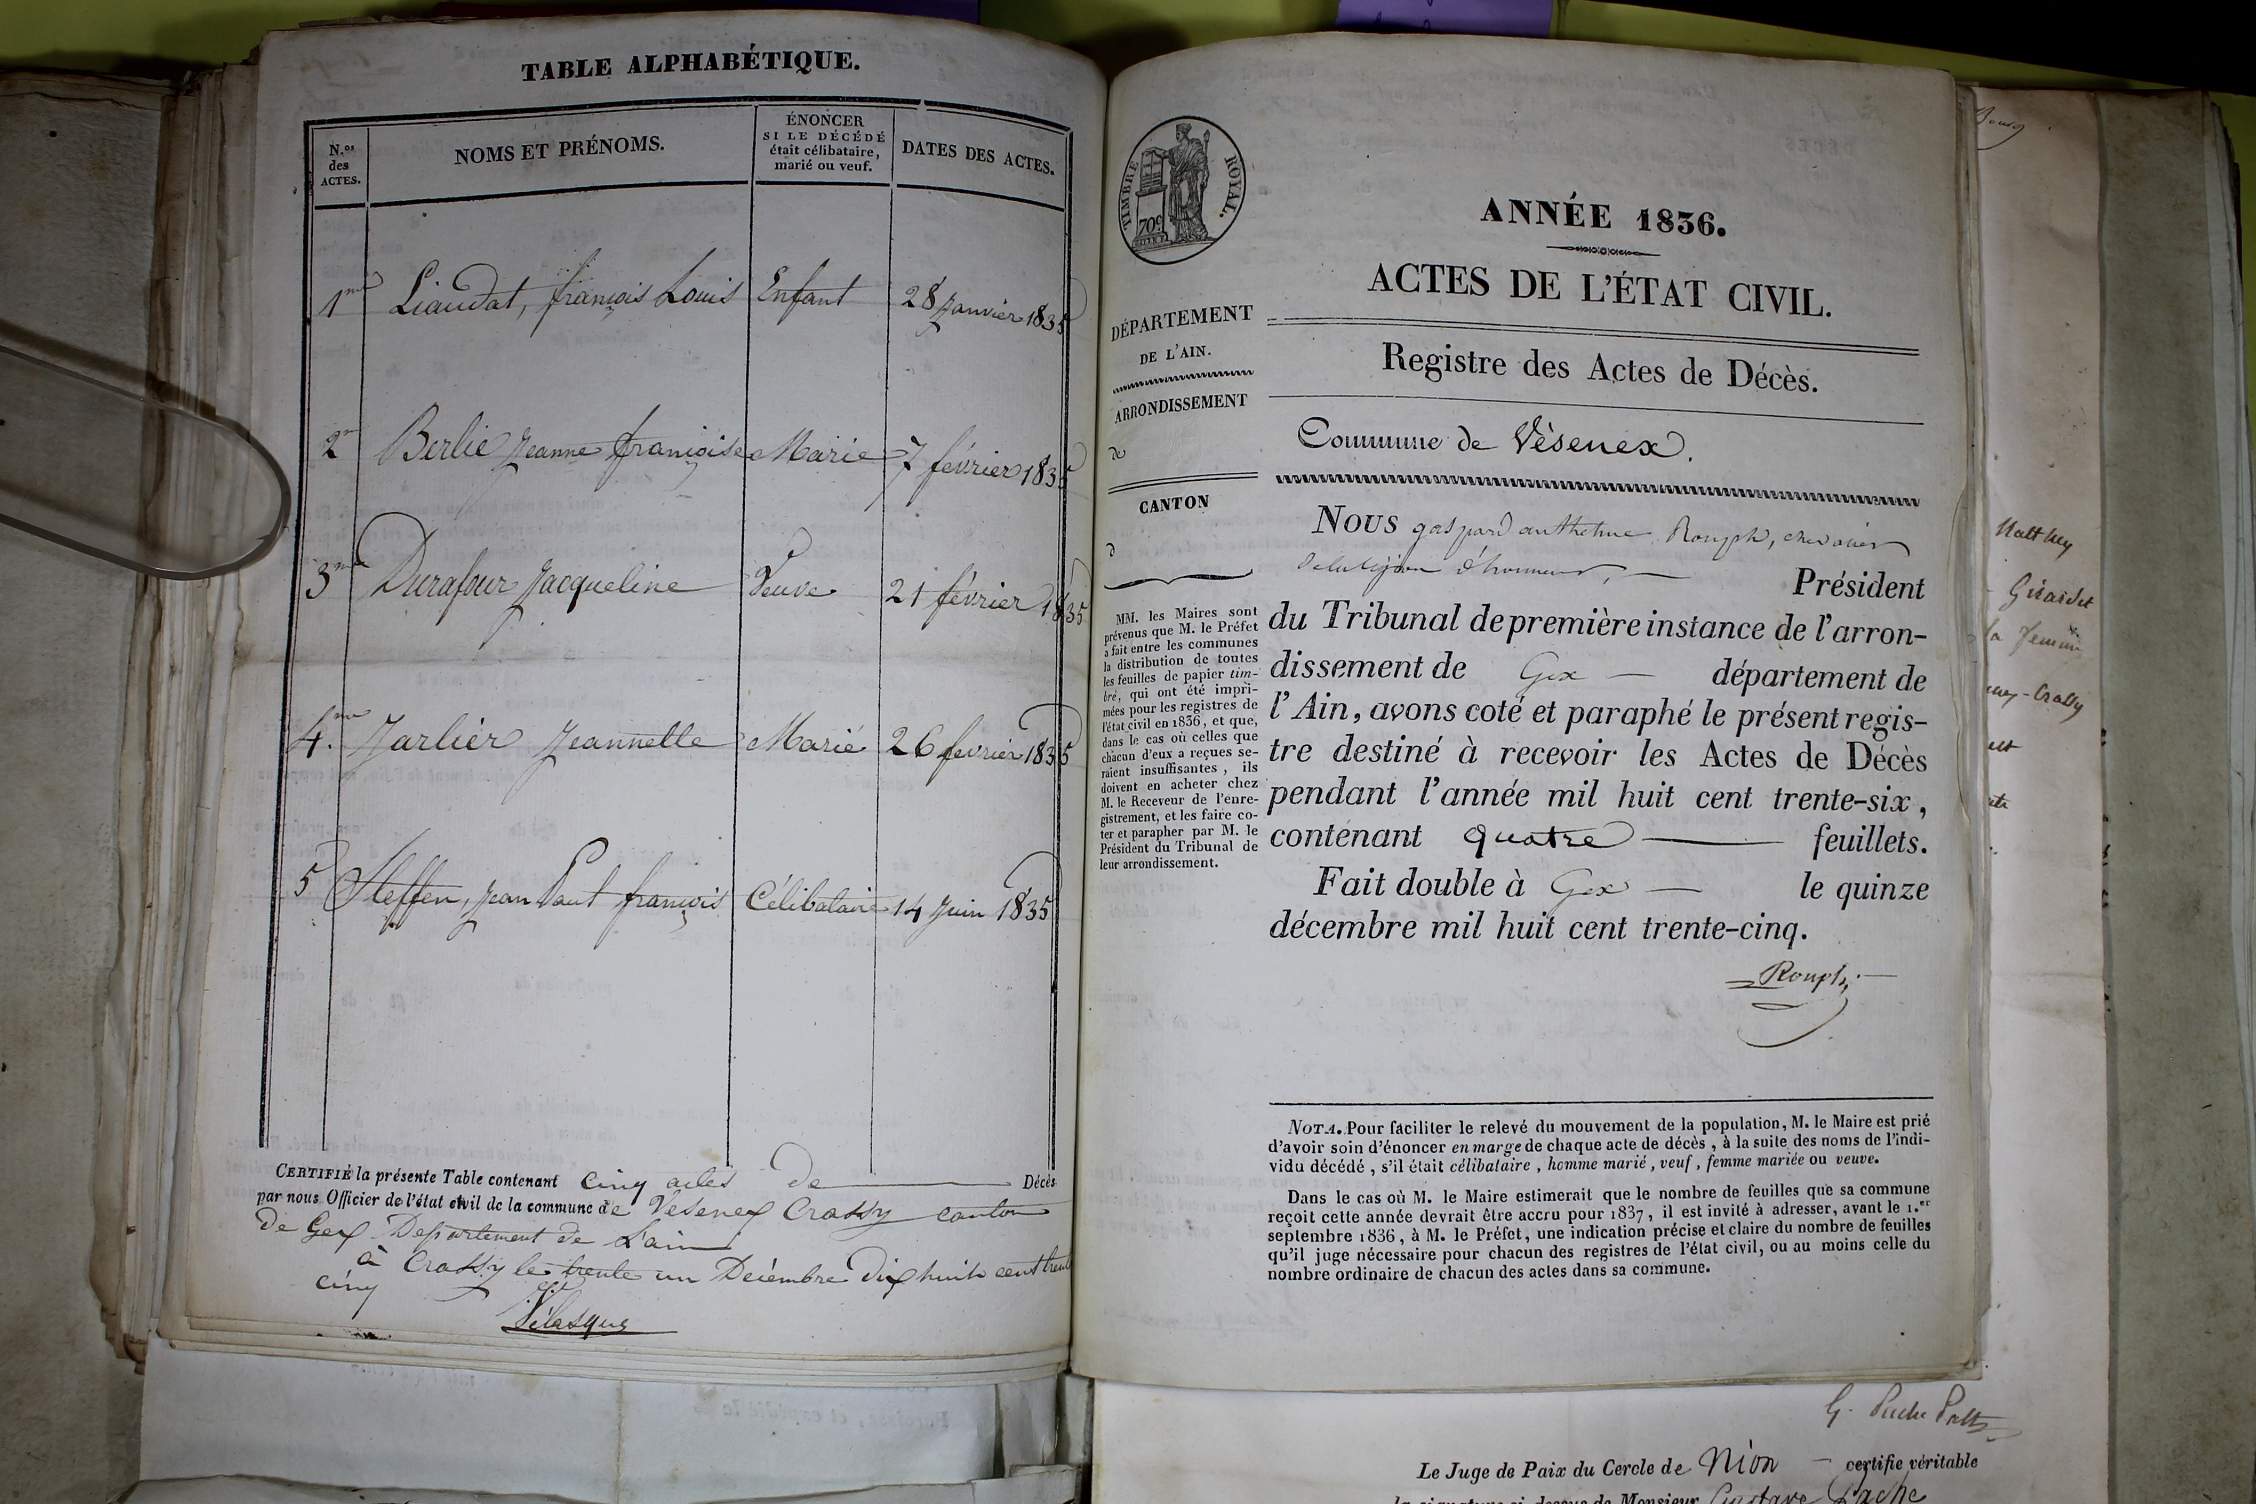 TABLE ALPHABÉTIQUE.
N.os des ACTES.
NOMS ET PRÉNOMS.
ÉNONCER SI LE DÉCÉDÉ était célibataire, marié ou veuf.
DATES DES ACTES.
1me Liaudat, françois Louis Enfant 28 Janvier 1835
2me Berlie Jeanne françoise Marié 7 février 1835
3me Durafour Jacqueline Veuve 21 février 1835
4me Jarlier Jeannette Marié 26 fevrier 1835
5 Steffen, Jean Paul françois Célibataire 14 Juin 1835
CERTIFIÉ la présente Table contenant cinq actes de Décès
par nous Officier de l'état civil de la commune de Vesenex Crassy canton
de Gex Departement de Lain
à Crassy le trente un Décembre dix huit cent trente
cinq
Vélasque
TIMBRE ROYAL.
70c
ANNÉE 1836.
ACTES DE L'ÉTAT CIVIL.
DÉPARTEMENT
DE L'AIN.
ARRONDISSEMENT
de
CANTON
d
MM. les Maires sont
prévenus que M. le Préfet
a fait entre les communes
la distribution de toutes
les feuilles de papier tim-
bré, qui ont été impri-
mées pour les registres de
l'état civil en 1836, et que,
dans le cas où celles que
chacun d'eux a reçues se-
raient insuffisantes, ils
doivent en acheter chez
M. le Receveur de l'enre-
gistrement, et les faire co-
ter et parapher par M. le
Président du Tribunal de
leur arrondissement.
Registre des Actes de Décès.
Commune de Vèsenex.
Nous gaspard anthelme Rouph, chevalier
de la légion d'honneur, Président
du Tribunal de première instance de l'arron-
dissement de Gex département de
l'Ain, avons coté et paraphé le présent regis-
tre destiné à recevoir les Actes de Décès
pendant l'année mil huit cent trente-six,
contenant quatre feuillets.
Fait double à Gex le quinze
décembre mil huit cent trente-cinq.
Rouph
NOTA. Pour faciliter le relevé du mouvement de la population, M. le Maire est prié
d'avoir soin d'énoncer en marge de chaque acte de décès, à la suite des noms de l'indi-
vidu décédé, s'il était célibataire, homme marié, veuf, femme mariée ou veuve.
Dans le cas où M. le Maire estimerait que le nombre de feuilles que sa commune
reçoit cette année devrait être accru pour 1837, il est invité à adresser, avant le 1.er
septembre 1836, à M. le Préfet, une indication précise et claire du nombre de feuilles
qu'il juge nécessaire pour chacun des registres de l'état civil, ou au moins celle du
nombre ordinaire de chacun des actes dans sa commune.
Matthey
Girardet
la femme
Crassy
Le Juge de Paix du Cercle de Nion certifie véritable
la signature ci-dessus de Monsieur Gustave Pache